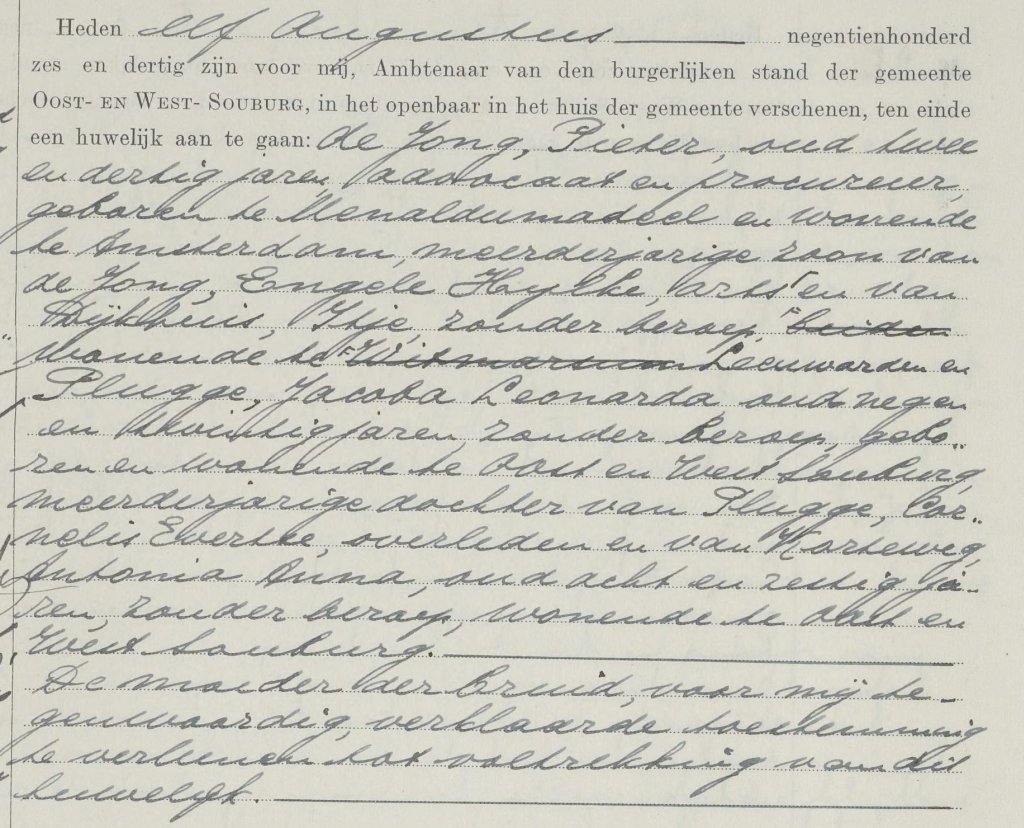 Heden elf Augustus negentienhonderd
zes en dertig zijn voor mij, Ambtenaar van den burgerlijken stand der gemeente
OOST- EN WEST- SOUBURG, in het openbaar in het huis der gemeente verschenen, ten einde
een huwelijk aan te gaan: de Jong, Pieter, oud twee
en dertig jaren, advocaat en procureur,
geboren te Menaldumadeel en wonende
te Amsterdam, meerderjarige zoon van
de Jong, Engele Hylke, arts en van
Dijkhuis, Itje, zonder beroep, beiden
wonende te Witmarsum Leeuwarden en
Plugge, Jacoba Leonarda, oud negen
en twintig jaren, zonder beroep, gebo„
ren en wonende te Oost en West Souburg,
meerderjarige dochter van Plugge, Cor„
nelis Evertse, overleden en van Korteweg,
Antonia Anna, oud acht en zestig ja„
ren, zonder beroep, wonende te Oost en
West Souburg.
De moeder der bruid, voor mij te„
genwoordig, verklaarde toestemming
te verleenen tot voltrekking van dit
huwelijk.